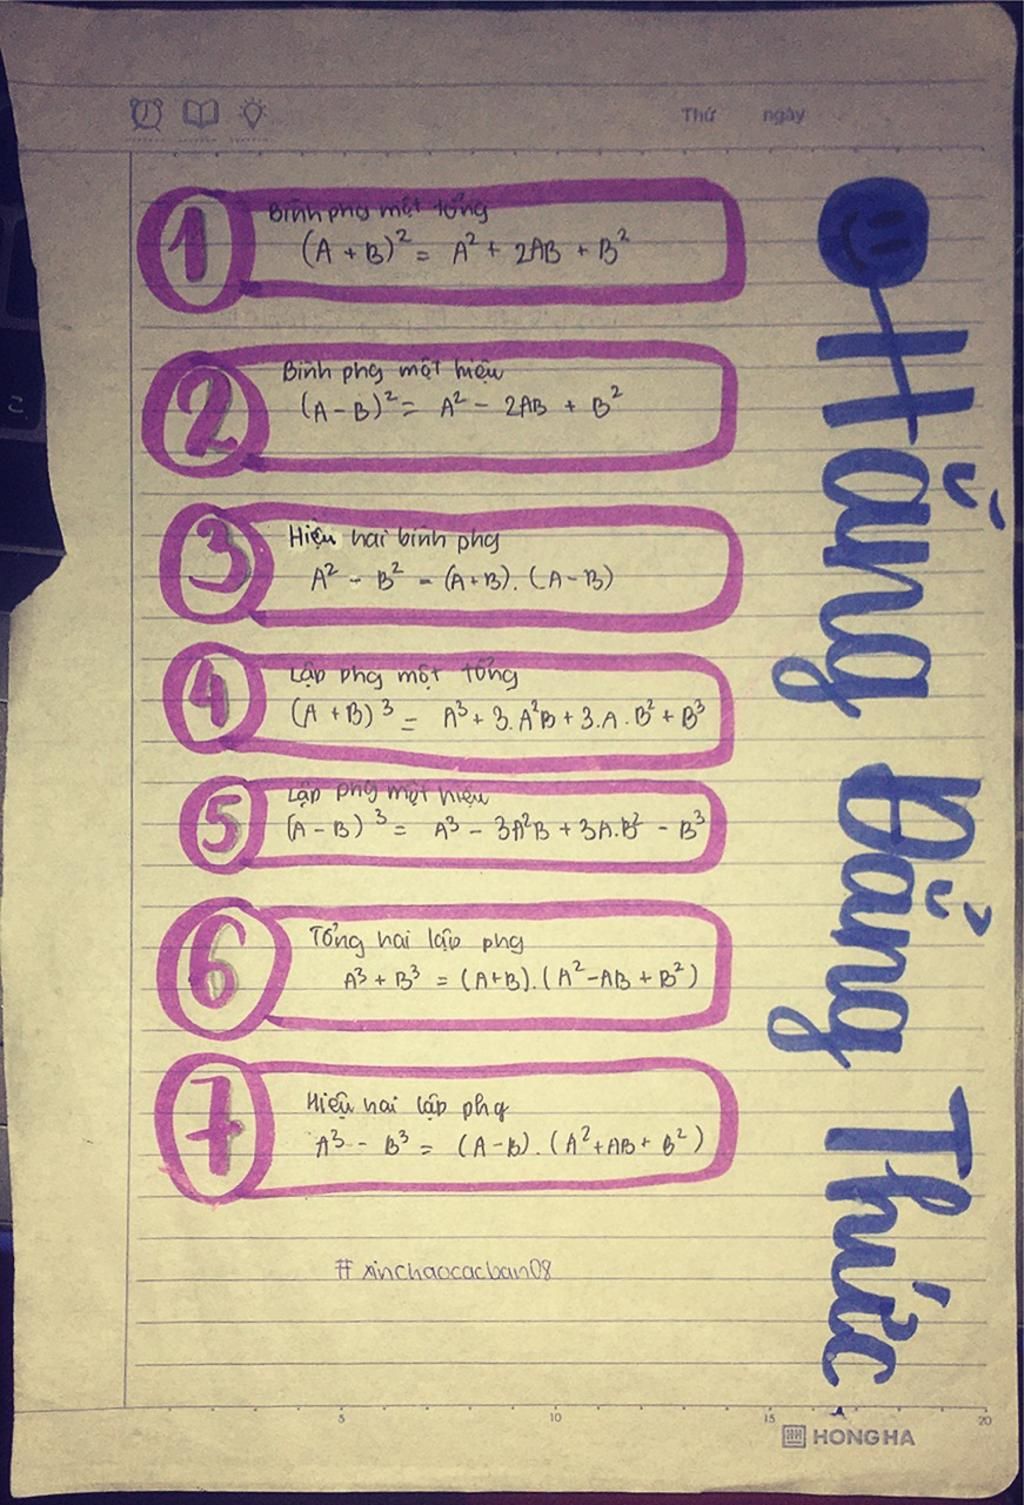 Thứ ngày
1
Bình phg một tổng
(A + B)² = A² + 2AB + B²
2
Bình phg một hiệu
(A - B)² = A² - 2AB + B²
3
Hiệu hai bình phg
A² - B² = (A+B). (A-B)
4
Lập phg một tổng
(A + B)³ = A³ + 3.A²B + 3.A.B² + B³
5
Lập phg một hiệu
(A - B)³ = A³ - 3A²B + 3A.B² - B³
6
Tổng hai lập phg
A³ + B³ = (A+B).(A²-AB + B²)
7
Hiệu hai lập phg
A³ - B³ = (A-B).(A²+AB+B²)
#xinchaocacban08
Hằng Đẳng Thức
5 10 15 20
HONG HA